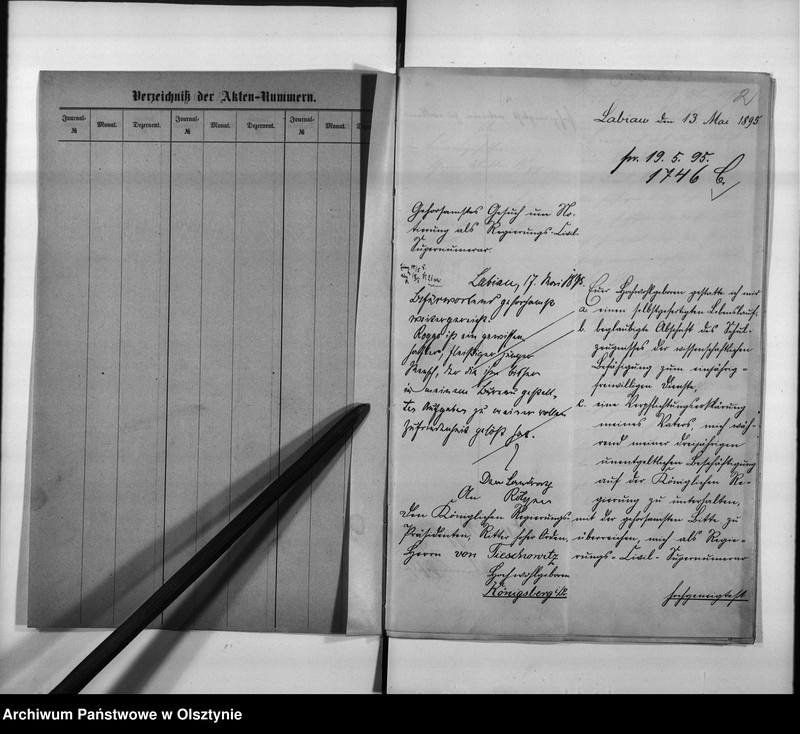 Verzeichniß der Akten-Nummern.
Journal-
№
Monat.
Dezernent.
Journal-
№
Monat.
Dezernent.
Journal-
№
Monat.
2
Labiau den 13 Mai 1895
pr. 19. 5. 95.
1746 C.
Gehorsamstes Gesuch um No-
tierung als Regierungs-Civil-
Supernumerar.
Labiau, 17. Mai 1895.
Befürwortend gehorsamst
weitergereicht.
ist ein gewissen-
hafter, fleißiger junger
Mensch, der die ihm bisher
in meinem Bureau gestell-
ten Aufgaben zu meiner vollen
Zufriedenheit gelöst hat.
Der Landrath
An
Den Königlichen Regierungs-
Präsidenten, Ritter hoher Orden,
Herrn von Tieschowitz
Hochwohlgeboren
Königsberg i/Pr.
Euer Hochwohlgeboren gestatte ich mir
a. einen selbstgefertigten Lebenslauf,
b. beglaubigte Abschrift des Schul-
zeugnisses der wissenschaftlichen
Befähigung zum einjährig-
freiwilligen Dienste,
c. eine Verpflichtungserklärung
meines Vaters, mich wäh-
rend meiner dreijährigen
unentgeltlichen Beschäftigung
auf der Königlichen Re-
gierung zu unterhalten,
mit der gehorsamsten Bitte zu
überreichen, mich als Regie-
rungs-Civil-Supernumerar
hochgeneigtest
Archiwum Państwowe w Olsztynie